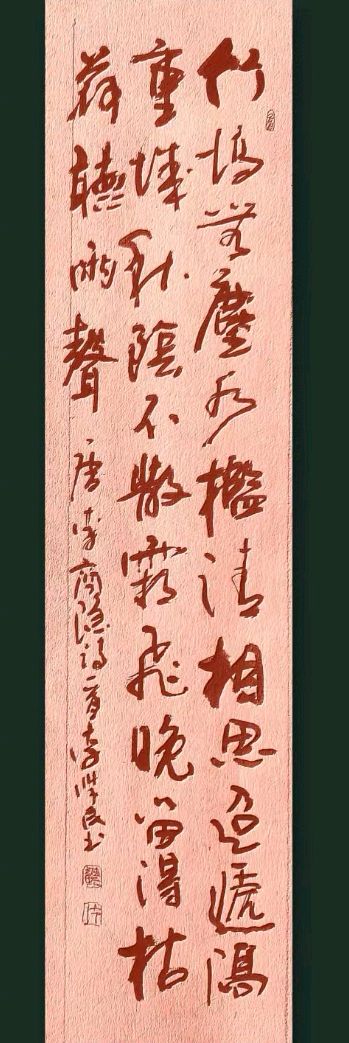 竹坞無塵水檻清相思迢遞隔
重城秋陰不散霜飛晚留得枯
荷聽雨聲 唐李商隐詩一首